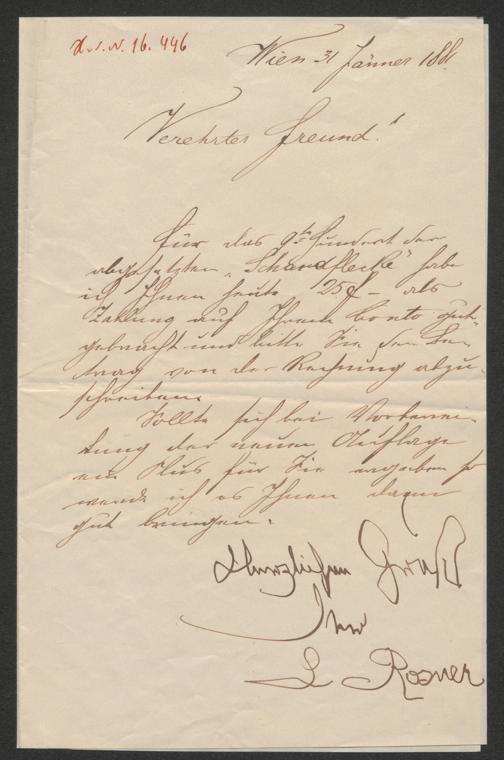 H.I.N. 16.446
Wien 31 Jänner 188
Verehrter Freund!
Für das 9te Hundert der
abgesetzten „Schandflecke" habe
ich Ihnen heute 25 f – als
Zahlung auf Ihrem Conto gut-
gebracht und bitte Sie den Be-
trag von der Rechnung abzu-
schreiben.
Sollte sich bei Vorberei-
tung der neuen Auflage
ein Plus für Sie ergeben so
werde ich es Ihnen dann
gut bringen.
Herzlichen Gruß
Ihr
L Rosner